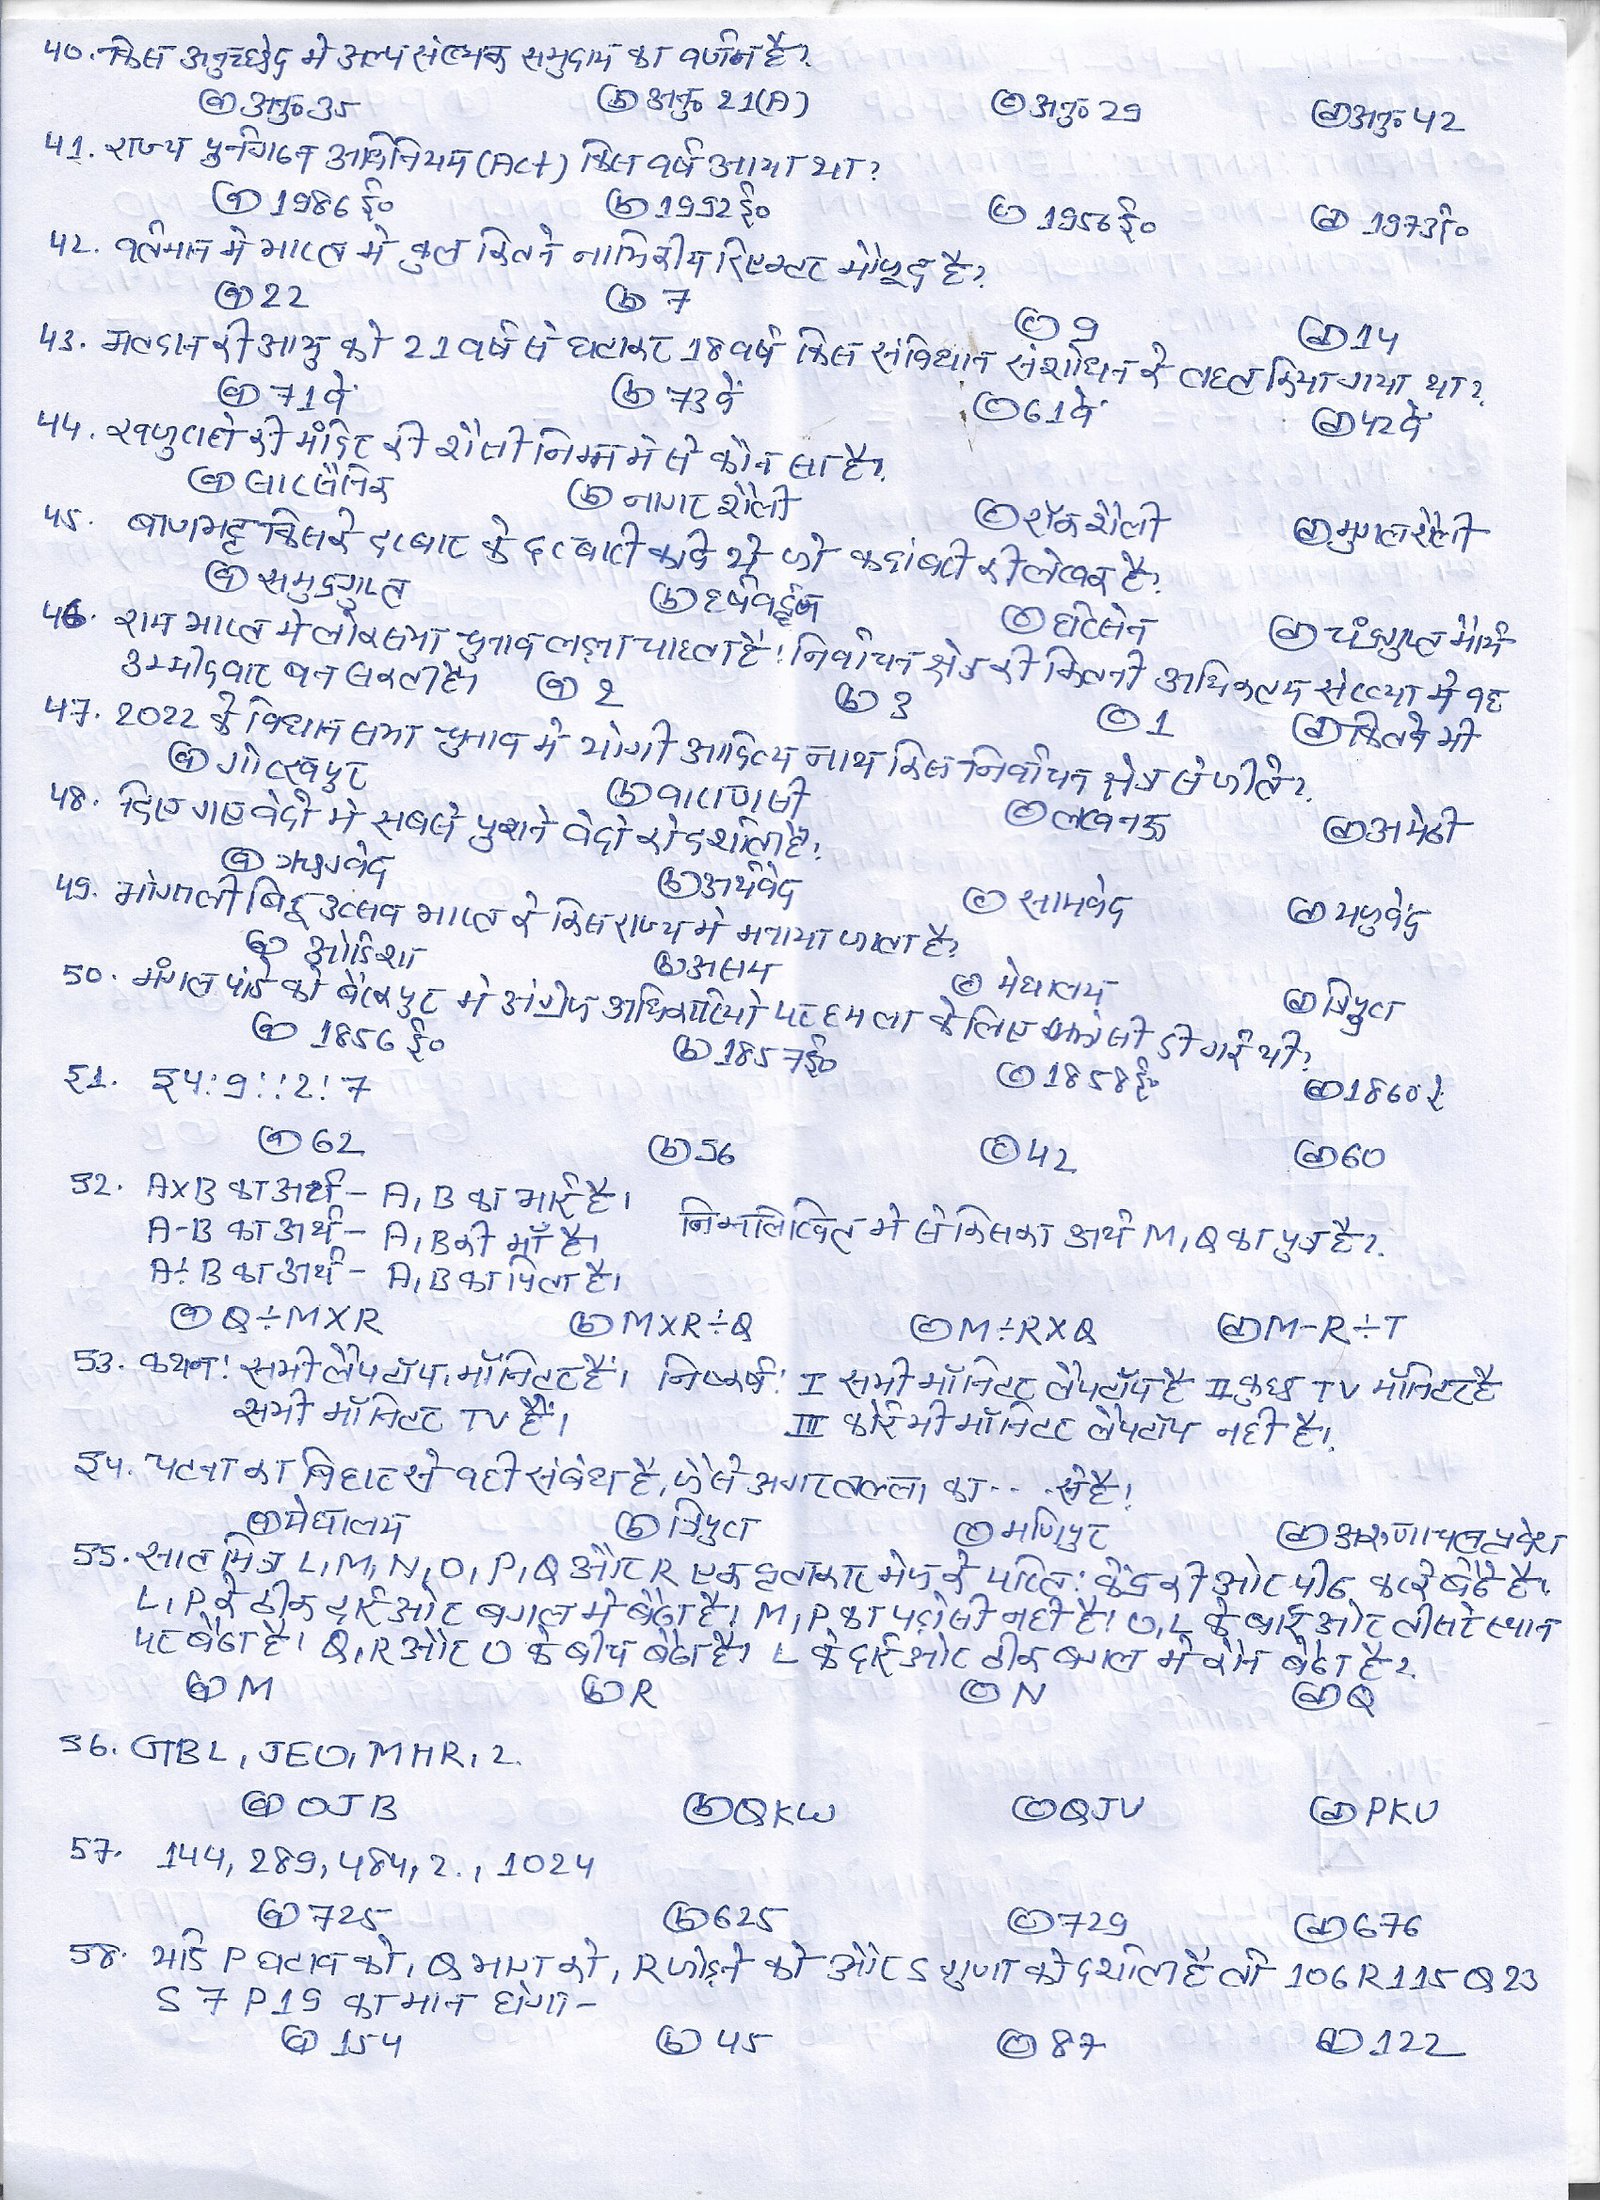 40. किस अनुच्छेद मे अल्प संख्यक समुदाय का वर्णन है?
(a) अनु० 35 (b) अनु० 21(A) (c) अनु० 29 (d) अनु० 42
41. राज्य पुर्नगठन अधिनियम (Act) किस वर्ष आया था?
(a) 1986 ई० (b) 1992 ई० (c) 1956 ई० (d) 1973 ई०
42. वर्तमान मे भारत मे कुल कितने नाभिकीय रिएक्टर मौजूद है?
(a) 22 (b) 7 (c) 9 (d) 14
43. मतदान की आयु को 21 वर्ष से घटाकर 18 वर्ष किस संविधान संशोधन के तहत किया गया था?
(a) 71 वे (b) 73 वें (c) 61 वें (d) 42 वें
44. खजुराहो की मंदिर की शैली निम्न मे से कौन सा है?
(a) सारसैनिक (b) नागर शैली (c) रॉक शैली (d) मुगल शैली
45. बाणभट्ट किसके दरबार के दरबारी कवि थे जो कदांबरी की लेखक है?
(a) समुद्रगुप्त (b) हर्षवर्द्धन (c) हरिसेन (d) चंद्रगुप्त मौर्य
46. राम भारत मे लोकसभा चुनाव लड़ना चाहता है! निर्वाचन क्षेत्र की कितनी अधिकतम संख्या मे वह
उम्मीदवार बन सकता है। (a) 2 (b) 3 (c) 1 (d) कितने भी
47. 2022 के विधान सभा चुनाव मे योगी आदित्य नाथ किस निर्वाचन क्षेत्र से जीते?
(a) गोरखपुर (b) वाराणसी (c) लखनऊ (d) अमेठी
48. दिए गए वेदो मे सबसे पुराने वेदो को दर्शाता है?
(a) ऋग्वेद (b) अर्थवेद (c) सामवेद (d) यजुर्वेद
49. भोगाली बिहू उत्सव भारत के किस राज्य मे मनाया जाता है?
(a) ओडिशा (b) असम (c) मेघालय (d) त्रिपुरा
50. मंगल पांडे को बैरकपुर मे अंग्रेज अधिकारियो पर हमला के लिए फांसी दी गई थी?
(a) 1856 ई० (b) 1857 ई० (c) 1858 ई० (d) 1860 ई
51. 54:9::?:7
(a) 62 (b) 56 (c) 42 (d) 60
52. A×B का अर्थ – A, B का भाई है।
A-B का अर्थ – A, B की माँ है। निम्नलिखित मे से किसका अर्थ M, Q का पुत्र है?
A÷B का अर्थ – A, B का पिता है।
(a) Q÷M×R (b) M×R÷Q (c) M÷R×Q (d) M-R÷T
53. कथन: सभी लैपटॉप, मॉनिटर है। निष्कर्ष: I सभी मॉनिटर लैपटॉप है II कुछ TV मॉनिटर है
सभी मॉनिटर TV है। III कोई भी मॉनिटर लैपटॉप नही है।
54. पटना का बिहार से वही संबंध है, जैसे अगरतल्ला का ... से है!
(a) मेघालय (b) त्रिपुरा (c) मणिपुर (d) अरुणाचल प्रदेश
55. सात मित्र L, M, N, O, P, Q और R एक वृत्ताकार मेज के परित: केंद्र की ओर पीठ करके बैठे है।
L, P के ठीक दाई ओर बगल मे बैठा है। M, P का पड़ोसी नही है। O, L के बाई ओर तीसरे स्थान
पर बैठा है। Q, R और O के बीच बैठा है। L के दाई ओर ठीक बगल मे कौन बैठा है?
(a) M (b) R (c) N (d) Q
56. GBL, JEO, MHR, ?
(a) OJB (b) QKW (c) QJV (d) PKU
57. 144, 289, 484, ?., 1024
(a) 725 (b) 625 (c) 729 (d) 676
58. यदि P घटाव को, Q भाग को, R जोड़ने को और S गुणा को दर्शाता है तो 106 R 115 Q 23
S 7 P 19 का मान होगा –
(a) 154 (b) 45 (c) 87 (d) 122